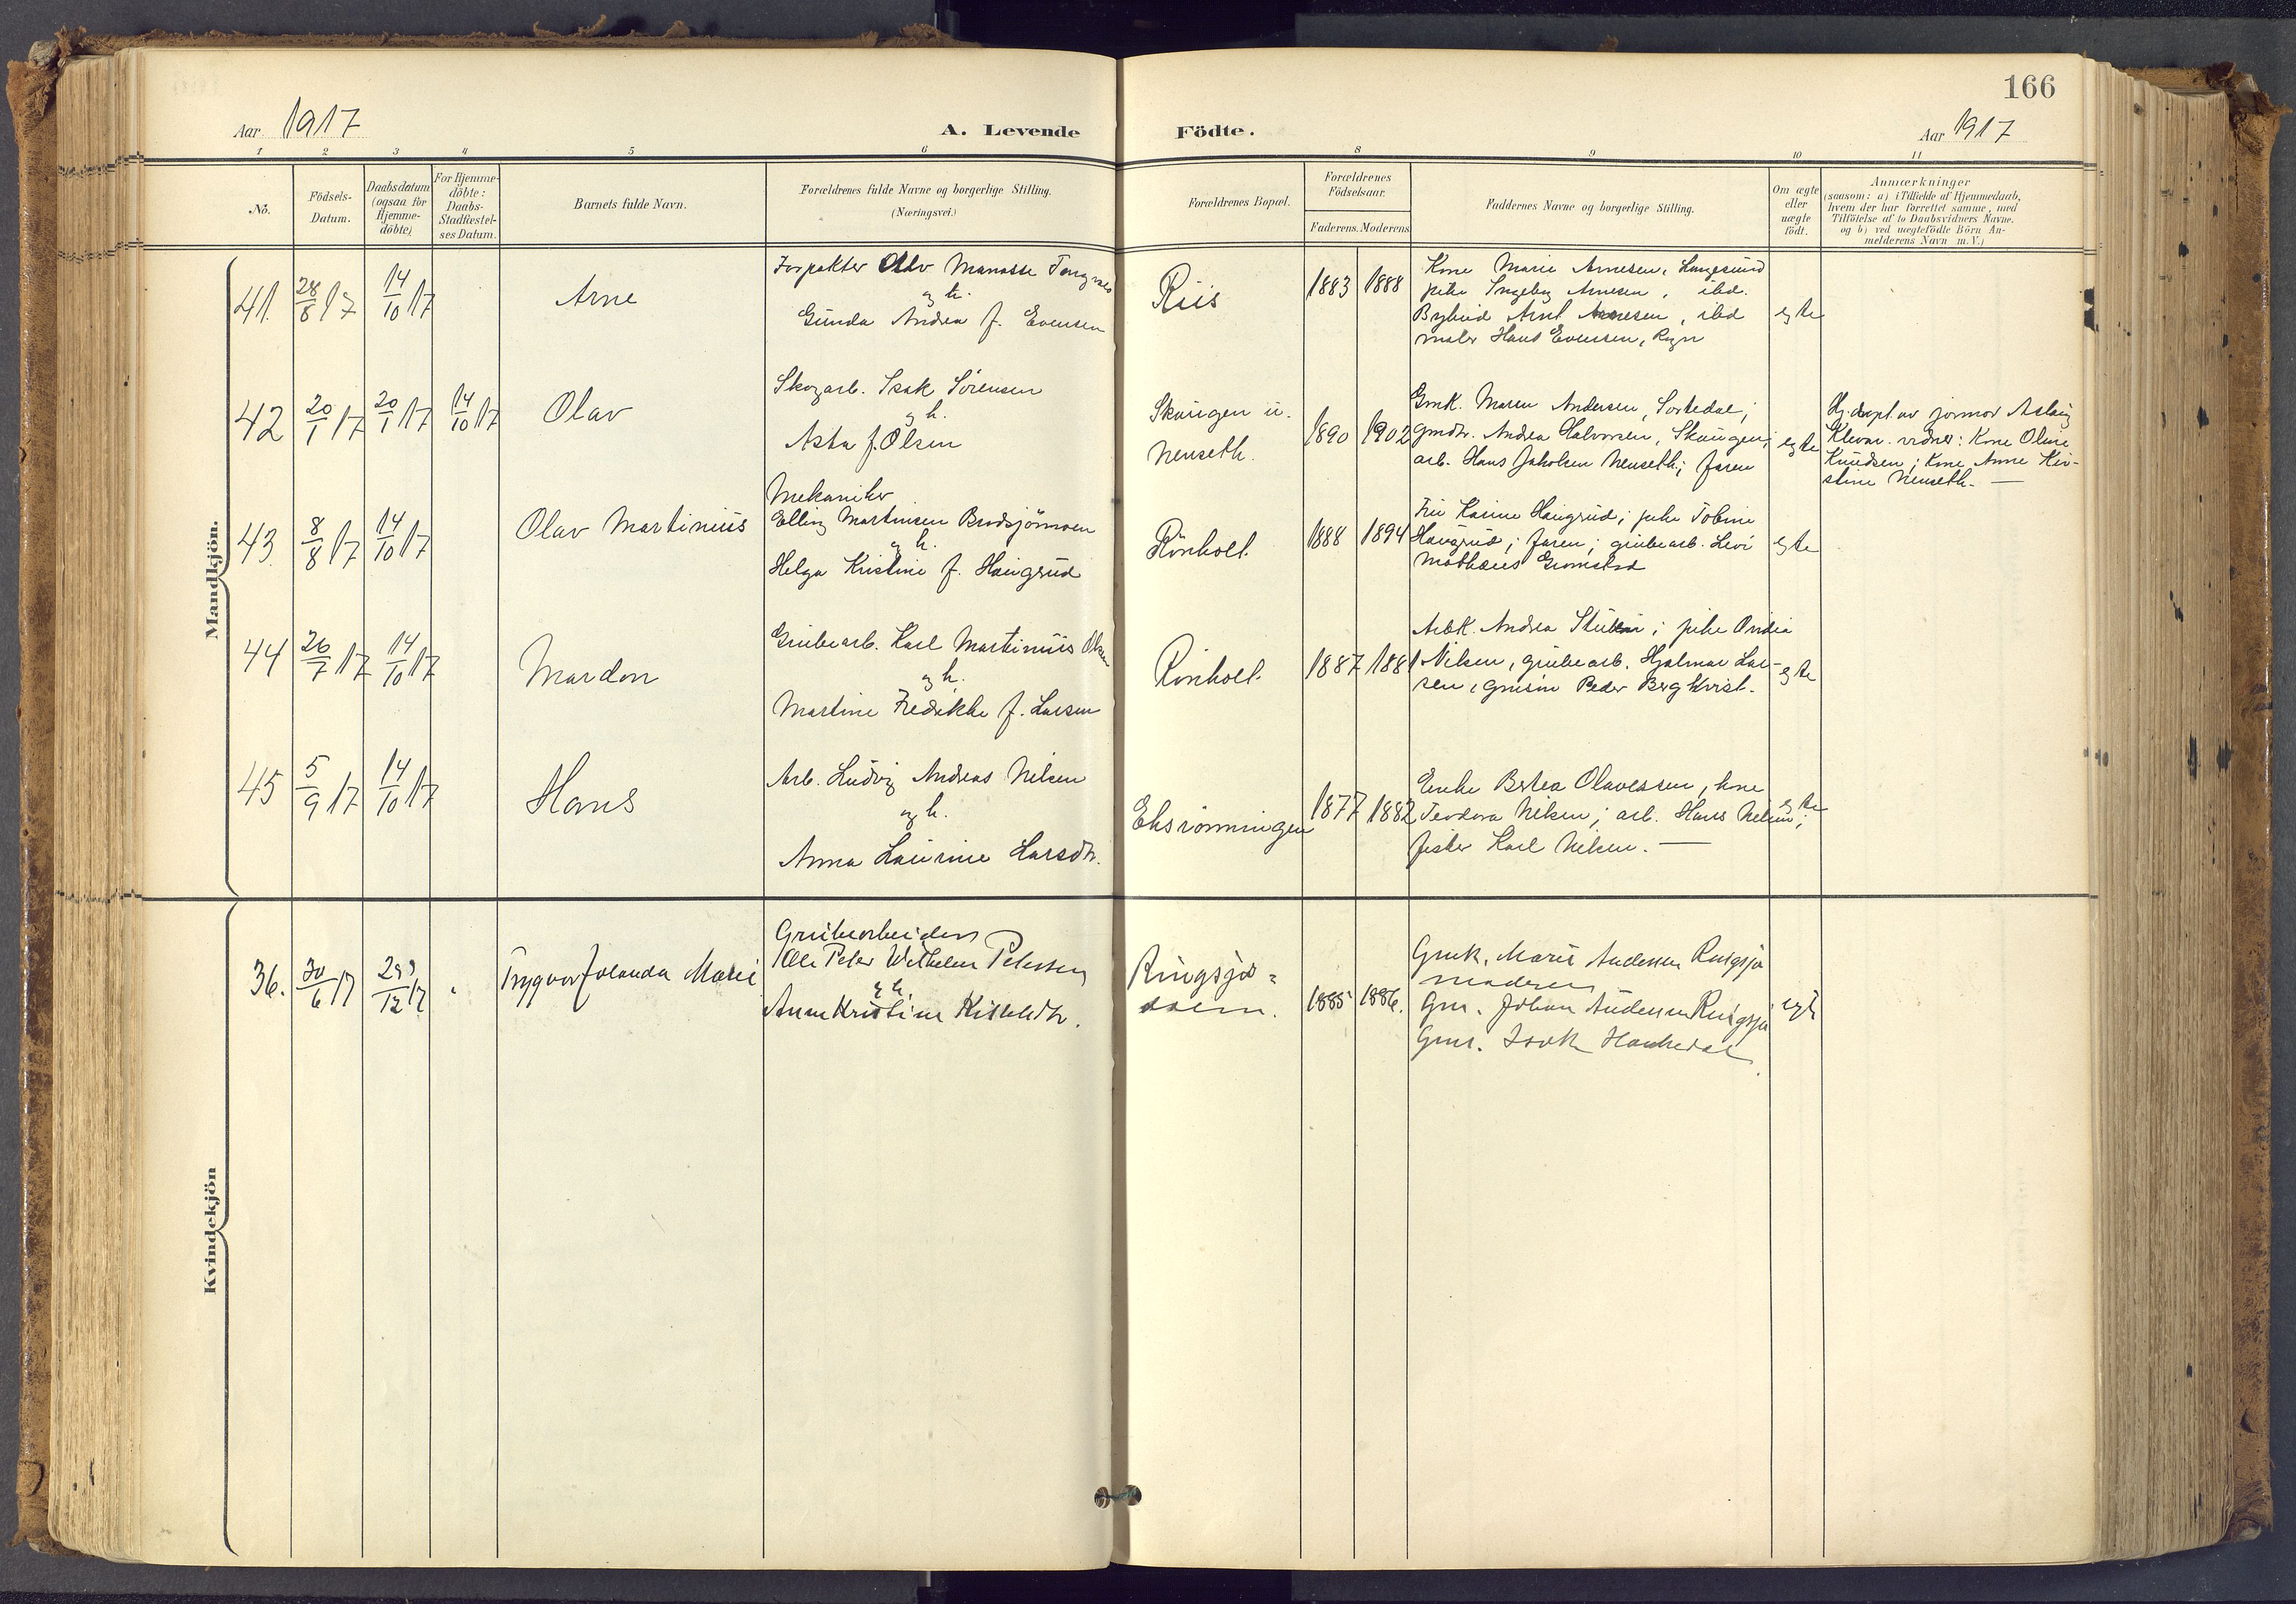 166
Aar 1917
A. Levende
Födte.
Aar 1917
1 2 3 4 5 6 8 9 10 11
No.
Födsels-
Datum.
Daabsdatum
(ogsaa for
Hjemme-
döbte)
For Hjemme-
döbte:
Daabs-
Stadfæstel-
ses Datum.
Barnets fulde Navn.
Forældrenes fulde Navne og borgerlige Stilling.
(Næringsvei.)
Forældrenes Bopæl.
Forældrenes
Födselsaar.
Faderens. Moderens
Faddernes Navne og borgerlige Stilling.
Om ægte
eller
uægte
födt.
Anmærkninger
(saasom: a) i Tilfælde af Hjemmedaab,
hvem der har forrettet samme, med
Tilföielse af to Daabsvidners Navne.
og b) ved uægtefödte Börn An-
melderens Navn m. V.)
Mandkjön.
41. 28/8 17 14/10 17
Arne
Forpakter Manasse
og h.
Gunda Andrea f. Evensen
Riis
1883 1888
Kone Marie Arnesen, Langesund
pike Ingeborg Arnesen, ibd.
Bybud Arnt Arnesen, ibd
maler Hans Evensen,
egte
42 20/1 17 20/1 17 14/10 17
Olav
Skogarb. Isak Sörensen
og h.
Asta f. Olsen
Skougen u.
Neuseth.
1890 1902
Gmk. Maren Andersen, Sortedal;
gmdtr. Andrea Halvorsen, Skougen;
arb. Hans Jakobsen Neuseth; faren
egte
Hj.döpt. av jormor Aslaug
Klevar. vidner: Kone Oline
Knudsen; Kone Anne Kir-
stine Neuseth. —
43. 8/8 17 14/10 17
Olav Martinius
Mekaniker
Elling Martinsen
og h.
Helga Kristine f. Haugrud
Rönholt.
1888 1894
Fru Karine Haugrud; pike Tobine
Haugrud; faren; grubearb. Levi
Mathæus Gromstad
egte
44 26/7 17 14/10 17
Mardon
Grubearb. Karl Martinius Olsen
og h.
Martine Fredrikke f. Larsen
Rönholt.
1887 1881
Arbk. Andrea ; pike
Nilsen, grubearb. Hjalmar Lar-
sen, Peder Bergkvist.
egte
45 5/9 17 14/10 17
Hans
Arb. Ludvig Andreas Nilsen
og h.
Anna Laurine Larsdtr.
Eksrönningen
1877 1882
Enke Bertea Olavessen, kone
Teodora Nilsen; arb. Hans Nilsen;
fisker Karl Nilsen. —
egte
Kvindekjön
36. 30/6 17
Trygvor Jolanda Marie
Grubearbeider
Ole Peter Wilhelm Petersen
og h.
Anne Kristine
Ringsjö=
1885 1886.
Gmk. Marie Andersen Ringsjö
moderen
Gm. Johan Andersen Ringsjö
Gm. Isak
egte